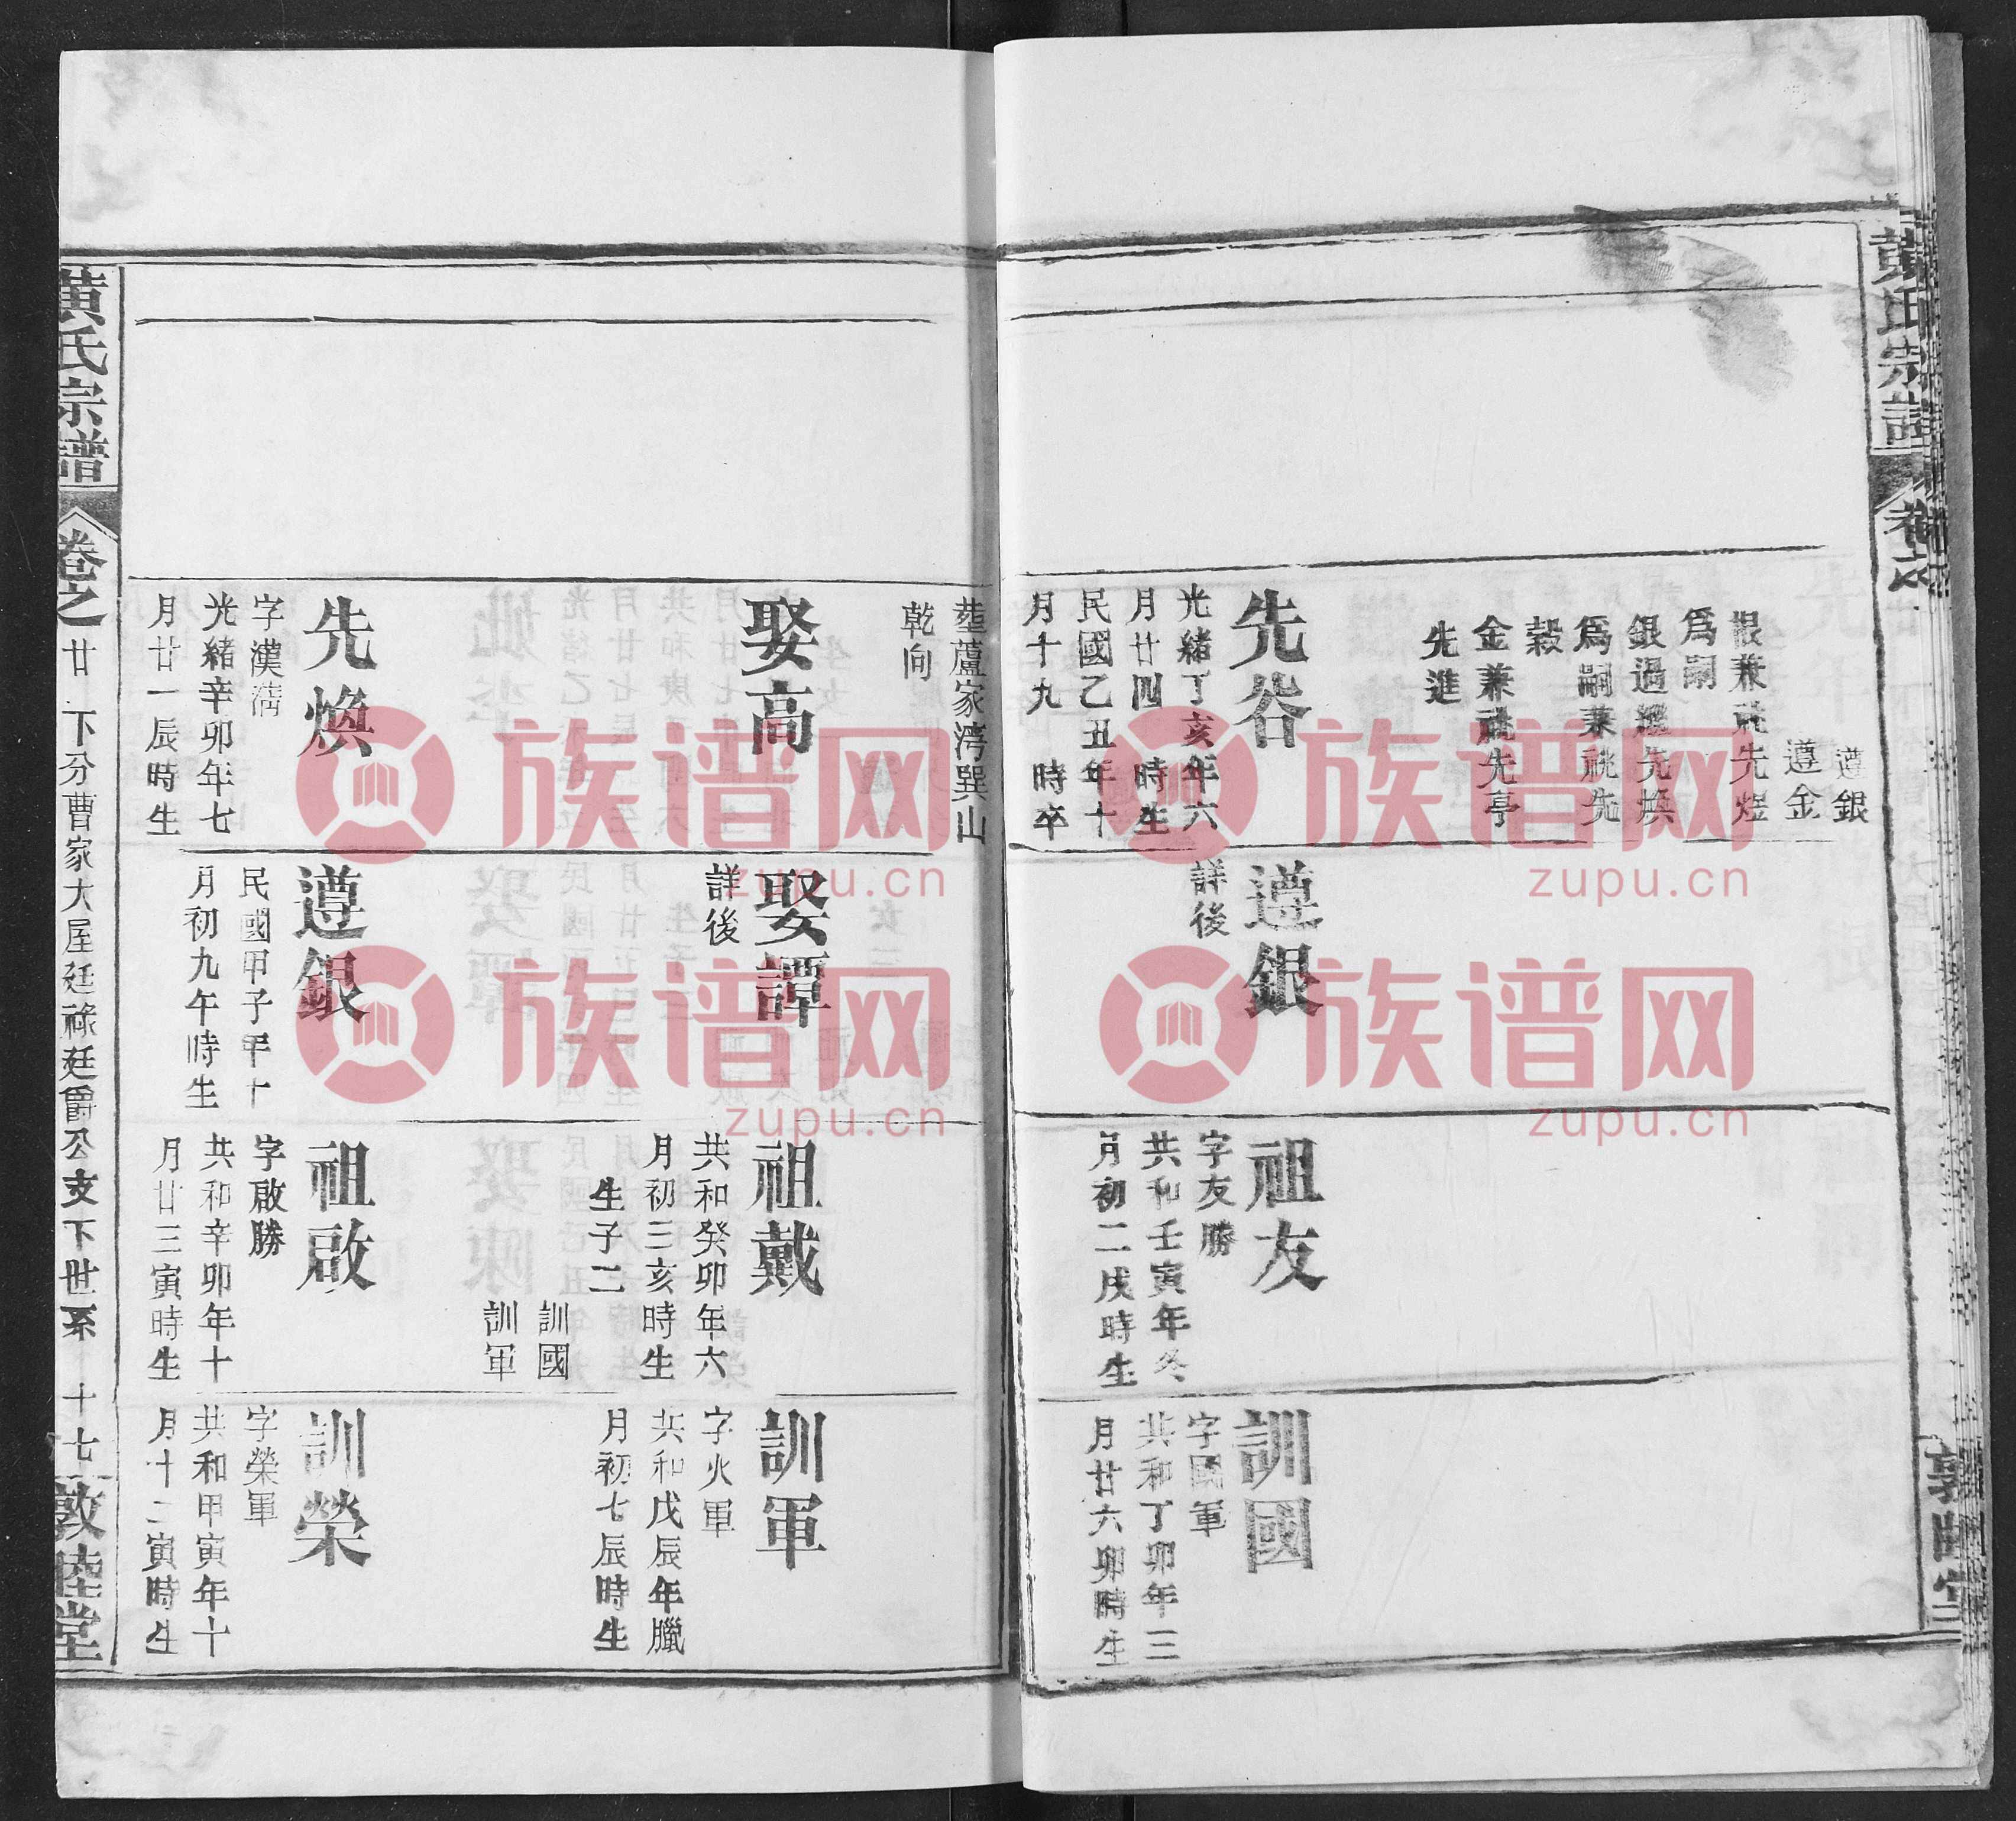 黃氏宗譜
卷之
遵銀
遵金
恨兼祧先煜
爲嗣
銀過繼先煥
爲嗣兼祧先
穀
金兼祧先亭
先進
先谷
光緒丁亥年六
月廿四 時生
民國乙丑年十
月十九 時卒
遵銀
詳後
祖友
字友勝
共和壬寅年冬
月初二戌時生
訓國
字國軍
共和丁卯年三
月廿六卯時生
塟蘆家湾巽山
乾向
娶高
娶譚
詳後
祖戴
共和癸卯年六
月初三亥時生
生子二
訓國
訓軍
訓軍
字火軍
共和戊辰年臘
月初七辰時生
先煥
字漢清
光緒辛卯年七
月廿一辰時生
遵銀
民國甲子年十
月初九午時生
祖啟
字啟勝
共和辛卯年十
月廿三寅時生
訓榮
字榮軍
共和甲寅年十
月十二寅時生
黃氏宗譜
卷之廿 下分曹家大屋廷祿廷爵公支下世系 十七 敦睦堂
族谱网
zupu.cn
族谱网
zupu.cn
族谱网
zupu.cn
族谱网
zupu.cn